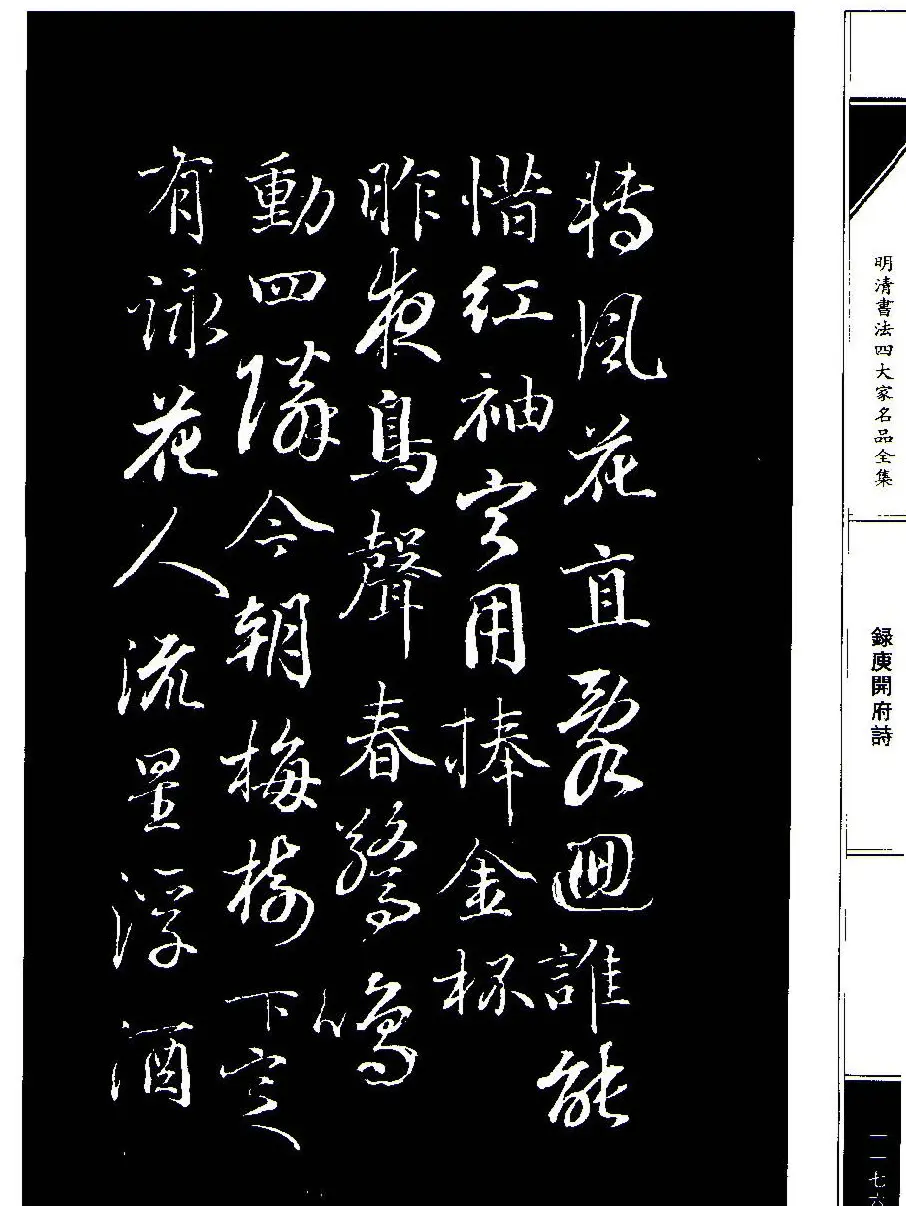 轉風花直亂迴誰能
惜紅袖寧用捧金杯
昨夜鳥聲春驚鳴
動四隣今朝梅樹下定
有詠花人流星浮酒
明清書法四大家名品全集
録庾開府詩
一一七六